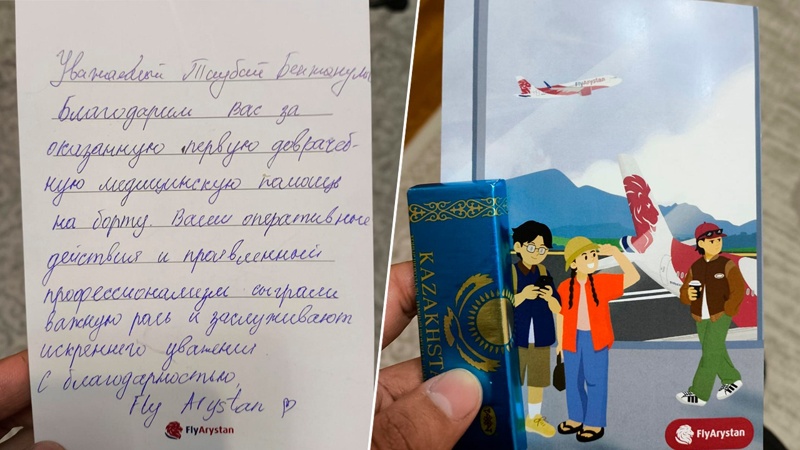 Уважаемый Таубай Бекжанулы
Благодарим вас за
оказанную первую доврачеб-
ную медицинскую помощь
на борту. Ваши оперативные
действия и проявленный
профессионализм сыграли
важную роль и заслуживают
искреннего уважения
С благодарностью,
Fly Arystan
FlyArystan
FlyArystan
KAZAKHST
FlyArystan